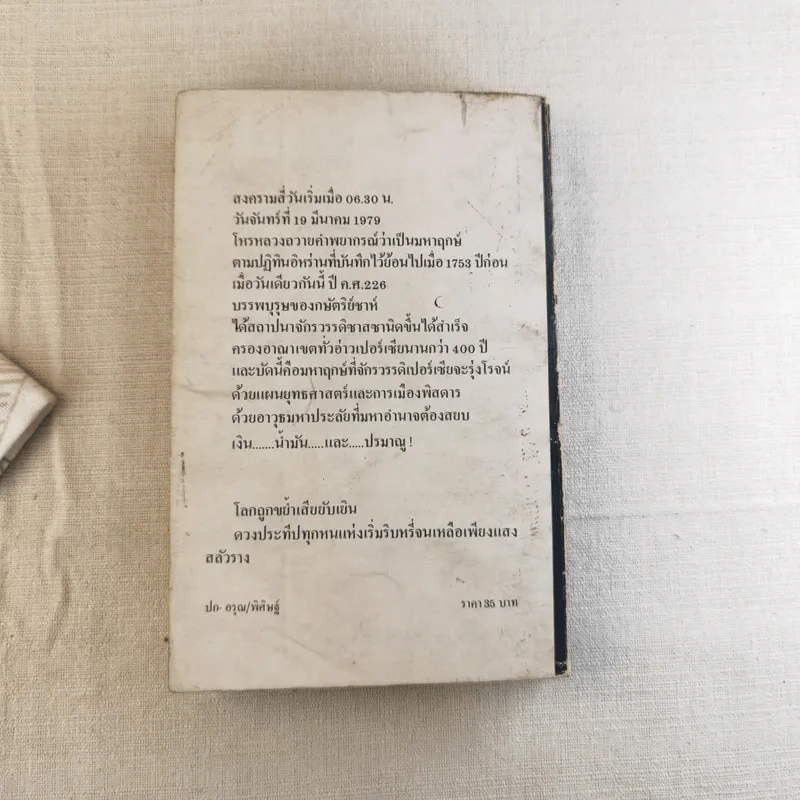 สงครามสี่วันเริ่มเมื่อ 06.30 น.
วันจันทร์ที่ 19 มีนาคม 1979
โหรหลวงถวายคำพยากรณ์ว่าเป็นมหาฤกษ์
ตามปฏิทินอิหร่านที่บันทึกไว้ย้อนไปเมื่อ 1753 ปีก่อน
เมื่อวันเดียวกันนี้ ปี ค.ศ.226
บรรพบุรุษของกษัตริย์ชาห์
ได้สถาปนาจักรวรรดิซาสซานิดขึ้นได้สำเร็จ
ครองอาณาเขตทั่วอ่าวเปอร์เซียนานกว่า 400 ปี
และบัดนี้คือมหาฤกษ์ที่จักรวรรดิเปอร์เซียจะรุ่งโรจน์
ด้วยแผนยุทธศาสตร์และการเมืองพิสดาร
ด้วยอาวุธมหาประลัยที่มหาอำนาจต้องสยบ
เงิน.......น้ำมัน.....และ.....ปรมาณู !
โลกถูกขย้ำเสียยับเยิน
ดวงประทีปทุกหนแห่งเริ่มริบหรี่จนเหลือเพียงแสง
สลัวราง
ปก. อรุณ/พิศิษฐ์
ราคา 35 บาท